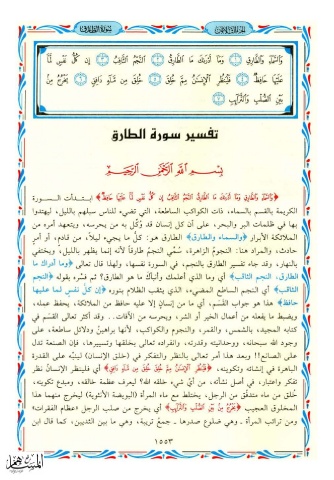 سورة الطارق
وَالسَّمَاءِ وَالطَّارِقِ ۝ وَمَا أَدْرَاكَ مَا الطَّارِقُ ۝ النَّجْمُ الثَّاقِبُ ۝ إِن كُلُّ نَفْسٍ لَّمَّا
عَلَيْهَا حَافِظٌ ۝ فَلْيَنظُرِ الْإِنسَانُ مِمَّ خُلِقَ ۝ خُلِقَ مِن مَّاءٍ دَافِقٍ ۝ يَخْرُجُ مِن
بَيْنِ الصُّلْبِ وَالتَّرَائِبِ ۝
تفسير سورة الطارق
بسم الله الرحمن الرحيم
﴿وَالسَّمَاءِ وَالطَّارِقِ وَمَا أَدْرَاكَ مَا الطَّارِقُ النَّجْمُ الثَّاقِبُ إِن كُلُّ نَفْسٍ لَّمَّا عَلَيْهَا حَافِظٌ﴾ ابتدأت السورة
الكريمة بالقسم بالسماء، ذات الكواكب الساطعة، التي تضيء للناس سبلهم بالليل، ليهتدوا
بها في ظلمات البر والبحر، على أن كل إنسان قد وُكّل به من يحرسه، ويتعهد أمره من
الملائكة الأبرار ﴿والسماء والطارق﴾ الطارق هو: كل ما يجيء ليلاً، من قادم، أو أمر
حادث، والمراد هنا: النجوم الزاهرة، سُمّي النجم طارقاً لأنه إنما يظهر بالليل، ويختفي
بالنهار، وقد جاء تفسير الطارق بالنجم، في السورة نفسها، ولهذا قال تعالى ﴿وما أدراك ما
الطارق. النجم الثاقب﴾ أي وما الذي أعلمك وأنبأك ما هو الطارق؟ ثم فسّره بقوله ﴿النجم
الثاقب﴾ أي النجم الساطع المضيء، الذي يثقب الظلام بنوره ﴿إن كل نفس لما عليها
حافظ﴾ هذا هو جواب القسم، أي ما من إنسان إلا عليه حافظ من الملائكة، يحفظ عمله،
ويضبط ما يفعله من أعمال الخير أو الشر، ويحرسه من الآفات.. وقد أكثر تعالى القسم في
كتابه المجيد، بالشمس، والقمر، والنجوم والكواكب، لأنها براهين ودلائل ساطعة، على
وجود الله سبحانه، ووحدانيته وقدرته، وانفراده تعالى بخلقها وتسييرها، فإن الصنعة تدل
على الصانع!! وبعد هذا أمر تعالى بالنظر والتفكر في (خلق الإنسان) لينبّه على القدرة
الباهرة في إنشائه وتكوينه، ﴿فَلْيَنظُرِ الْإِنسَانُ مِمَّ خُلِقَ خُلِقَ مِن مَّاءٍ دَافِقٍ﴾ أي فلينظر الإنسان نظر
تفكر واعتبار، في أصل نشأته، من أيّ شيء خلقه الله؟ ليعرف عظمة خالقه، ومبدع تكوينه،
خُلق من ماء متدفّق من الرجل، يختلط مع ماء المرأة (البويضة الأنثوية) ليخرج منهما هذا
المخلوق العجيب ﴿يَخْرُجُ مِن بَيْنِ الصُّلْبِ وَالتَّرَائِبِ﴾ أي يخرج من صلب الرجل (عظام الفقرات)
ومن ترائب المرأة ـ وهي ضلوع صدرها ـ جمعُ تريبة، وهي ما بين الثديين، كما قال ابن
١٥٥٣